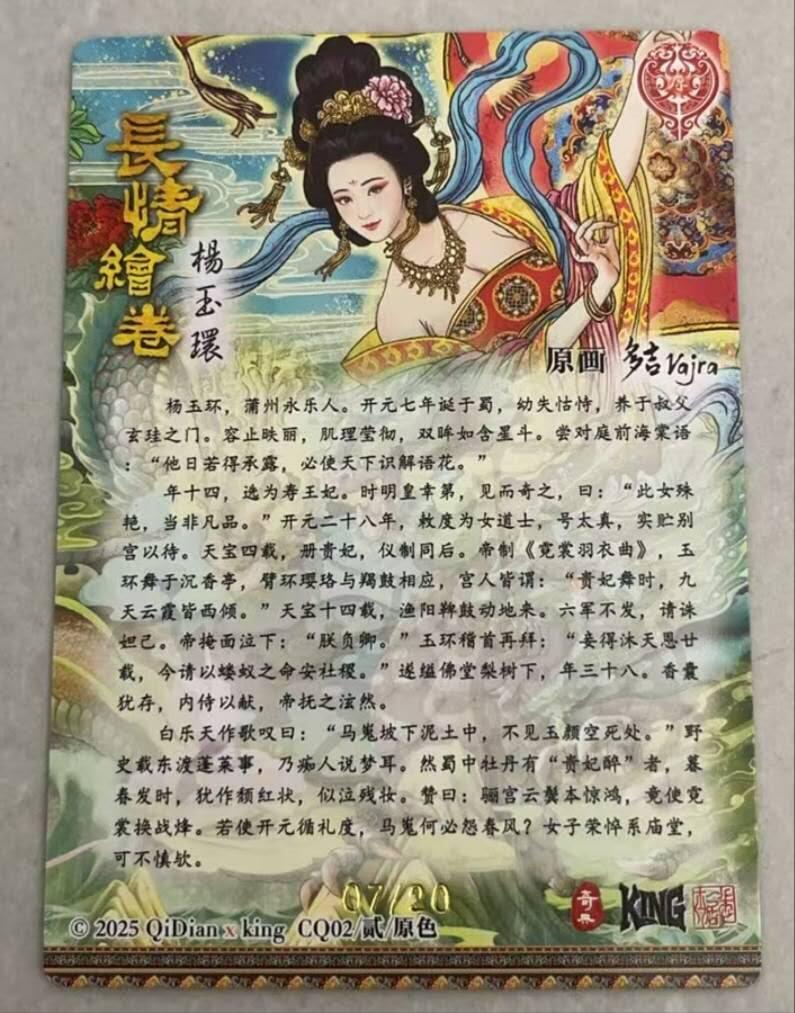 長情繪卷
楊玉環
原画 多吉Vajra
杨玉环，蒲州永乐人。开元七年诞于蜀，幼失怙恃，养于叔父
玄珪之门。容止昳丽，肌理莹彻，双眸如含星斗。尝对庭前海棠语
：“他日若得承露，必使天下识解语花。”
年十四，选为寿王妃。时明皇幸第，见而奇之，曰：“此女殊
艳，当非凡品。”开元二十八年，敕度为女道士，号太真，实贮别
宫以待。天宝四载，册贵妃，仪制同后。帝制《霓裳羽衣曲》，玉
环舞于沉香亭，臂环璎珞与羯鼓相应，宫人皆谓：“贵妃舞时，九
天云霞皆西倾。”天宝十四载，渔阳鞞鼓动地来。六军不发，请诛
妲己。帝掩面泣下：“朕负卿。”玉环稽首再拜：“妾得沐天恩廿
载，今请以蝼蚁之命安社稷。”遂缢佛堂梨树下，年三十八。香囊
犹存，内侍以献，帝抚之泫然。
白乐天作歌叹曰：“马嵬坡下泥土中，不见玉颜空死处。”野
史载东渡蓬莱事，乃痴人说梦耳。然蜀中牡丹有“贵妃醉”者，暮
春发时，犹作颓红状，似泣残妆。赞曰：骊宫云鬓本惊鸿，竟使霓
裳换战烽。若使开元循礼度，马嵬何必怨春风？女子荣悴系庙堂，
可不慎欤。
07/20
© 2025 QiDian x king CQ02/贰/原色
KING